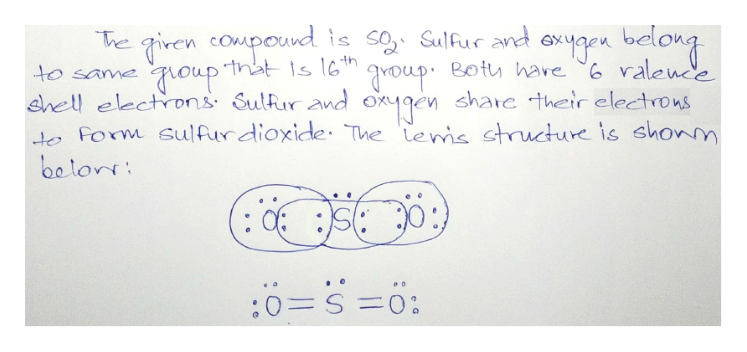 The given compound is SO₂. Sulfur and oxygen belong
to same group that is 16th group. Both have 6 valence
shell electrons. Sulfur and oxygen share their electrons
to form sulfur dioxide. The Lewis structure is shown
below:
:Ö: :S̈: :Ö:
:Ö=S̈=Ö: